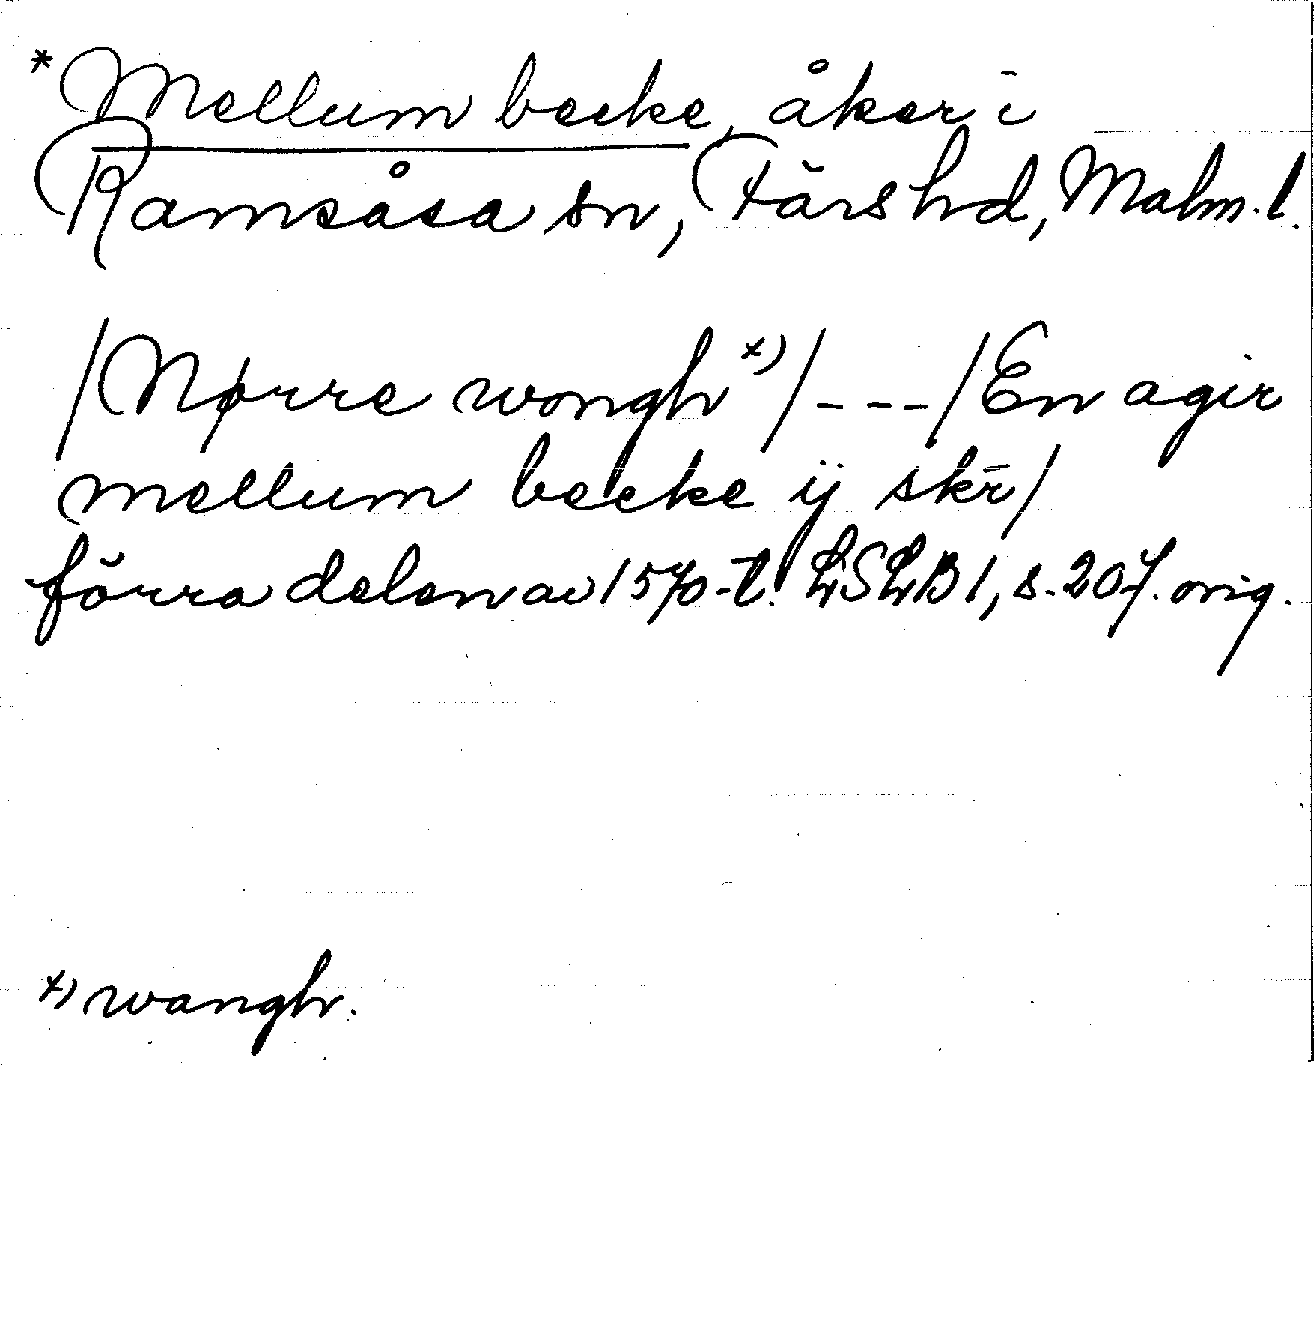 *Mellum becke, åker i
Ramsåsa sn, Färs hd, Malm. l.
/Nørre wongh x)/ - - - / En agir
mellum becke ij skr̄/
förra delen av 1570-t. LSLB 1, s. 207. orig.
x) wangh.